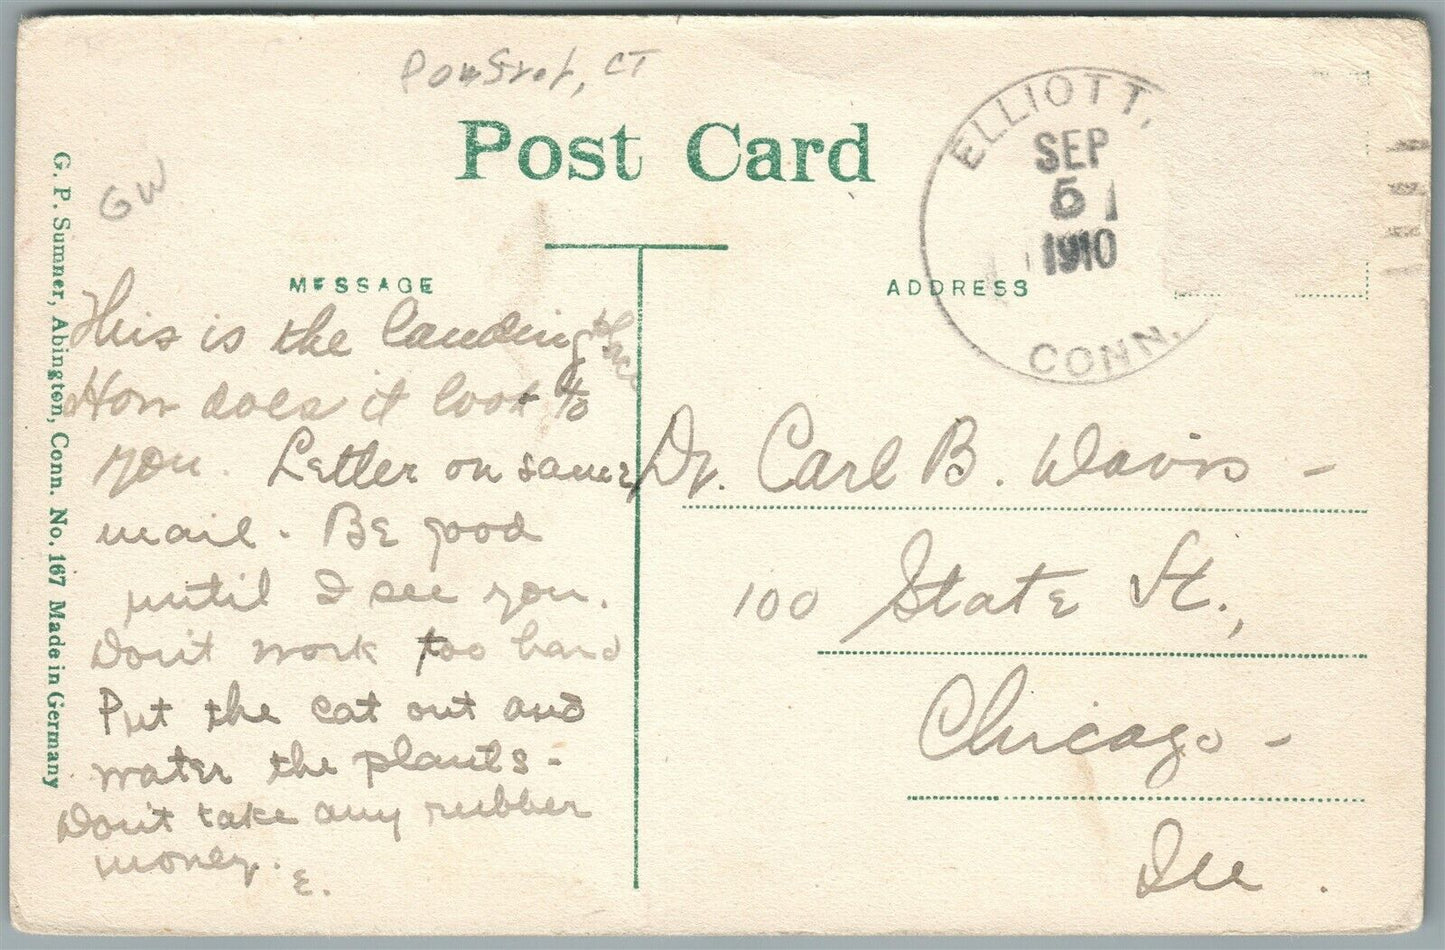 Pomfret, CT
Post Card
GW
G. P. Sumner, Abington, Conn. No. 167 Made in Germany
MESSAGE
ADDRESS
ELLIOTT,
SEP
5
1910
CONN.
This is the landing place
How does it look to
you. Letter on same
mail. Be good
until I see you.
Don't work too hard
Put the cat out and
water the plants -
Don't take any rubber
money.
E.
Dr. Carl B. Davis -
100 State St.,
Chicago -
Ill.